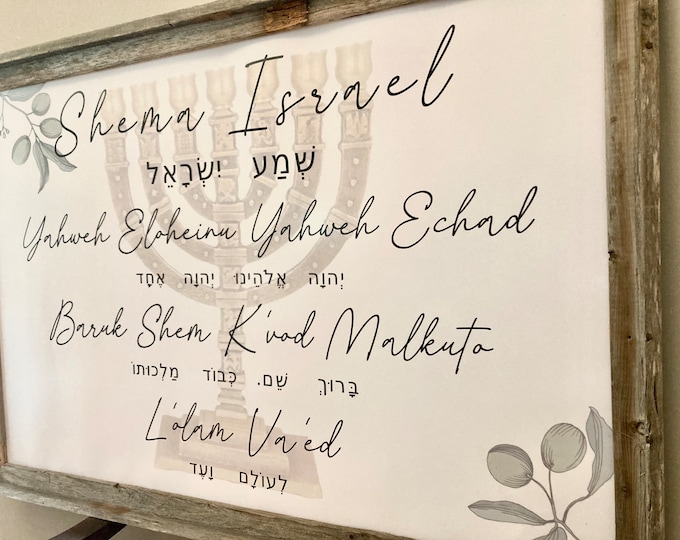 Shema Israel
שְׁמַע יִשְׂרָאֵל
Yahweh Eloheinu Yahweh Echad
יְהוָה אֱלֹהֵינוּ יְהוָה אֶחָד
Baruk Shem K'vod Malkuto
בָּרוּךְ שֵׁם. כְּבוֹד מַלְכוּתוֹ
L'olam Va'ed
לְעוֹלָם וָעֶד